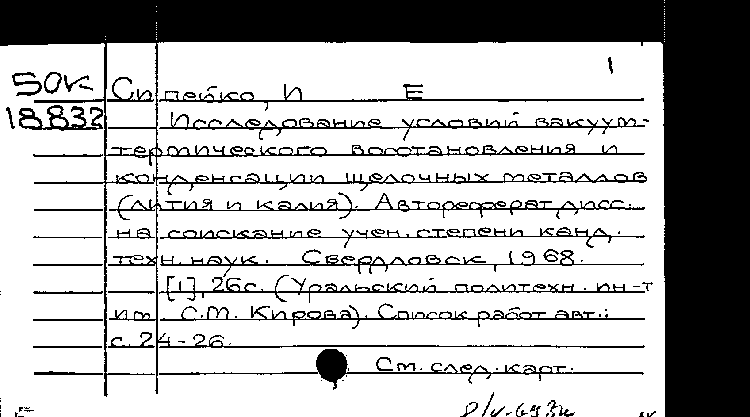 1
50к Сипейко, И Е
18832 Исследование условий вакуум-
термического восстановления и
конденсации щелочных металлов
(лития и калия). Автореферат дисс.
на соискание учен. степени канд.
техн. наук. Свердловск, 1968.
[1], 26с. (Уральский политехн. ин-т
им. С.М. Кирова). Список работ авт.:
с. 24-26.
См. след. карт.